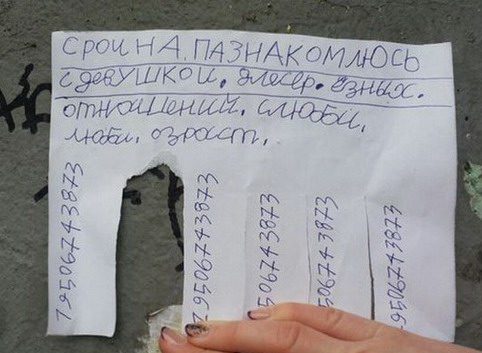 СРОИНА. ПАЗНАКОМЛЮСЬ
с девушкой. длесер. ёзных.
отношений. слюбви.
люби. озраст.
79506743873
79506743873
9506743873
9506743873
9506743873